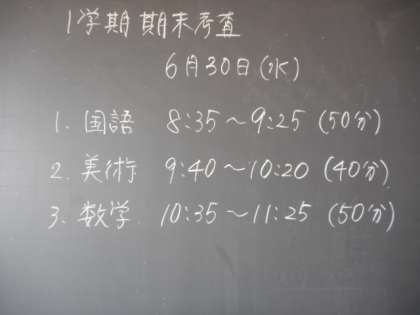 1学期 期末考査
6月30日(水)
1. 国語 8:35〜9:25 (50分)
2. 美術 9:40〜10:20 (40分)
3. 数学. 10:35〜11:25 (50分)